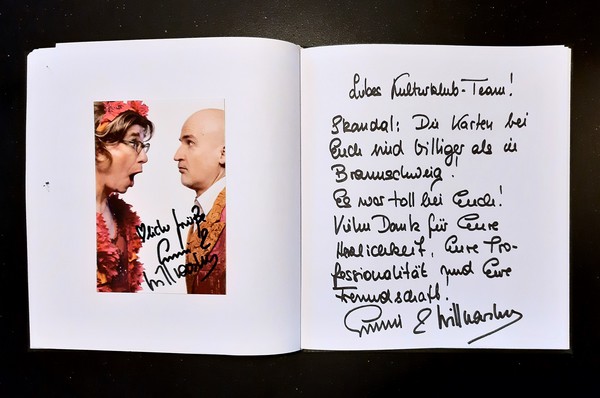 ♡lich grüße
Emmi &
Willnowsky
Liebes Kulturklub-Team!
Skandal: Die Karten bei
Euch sind billiger als in
Braunschweig!
Es war toll bei Euch!
Vielen Dank für Eure
Herzlichkeit, Eure Pro-
fessionalität und Eure
Freundschaft.
Emmi & Willnowsky